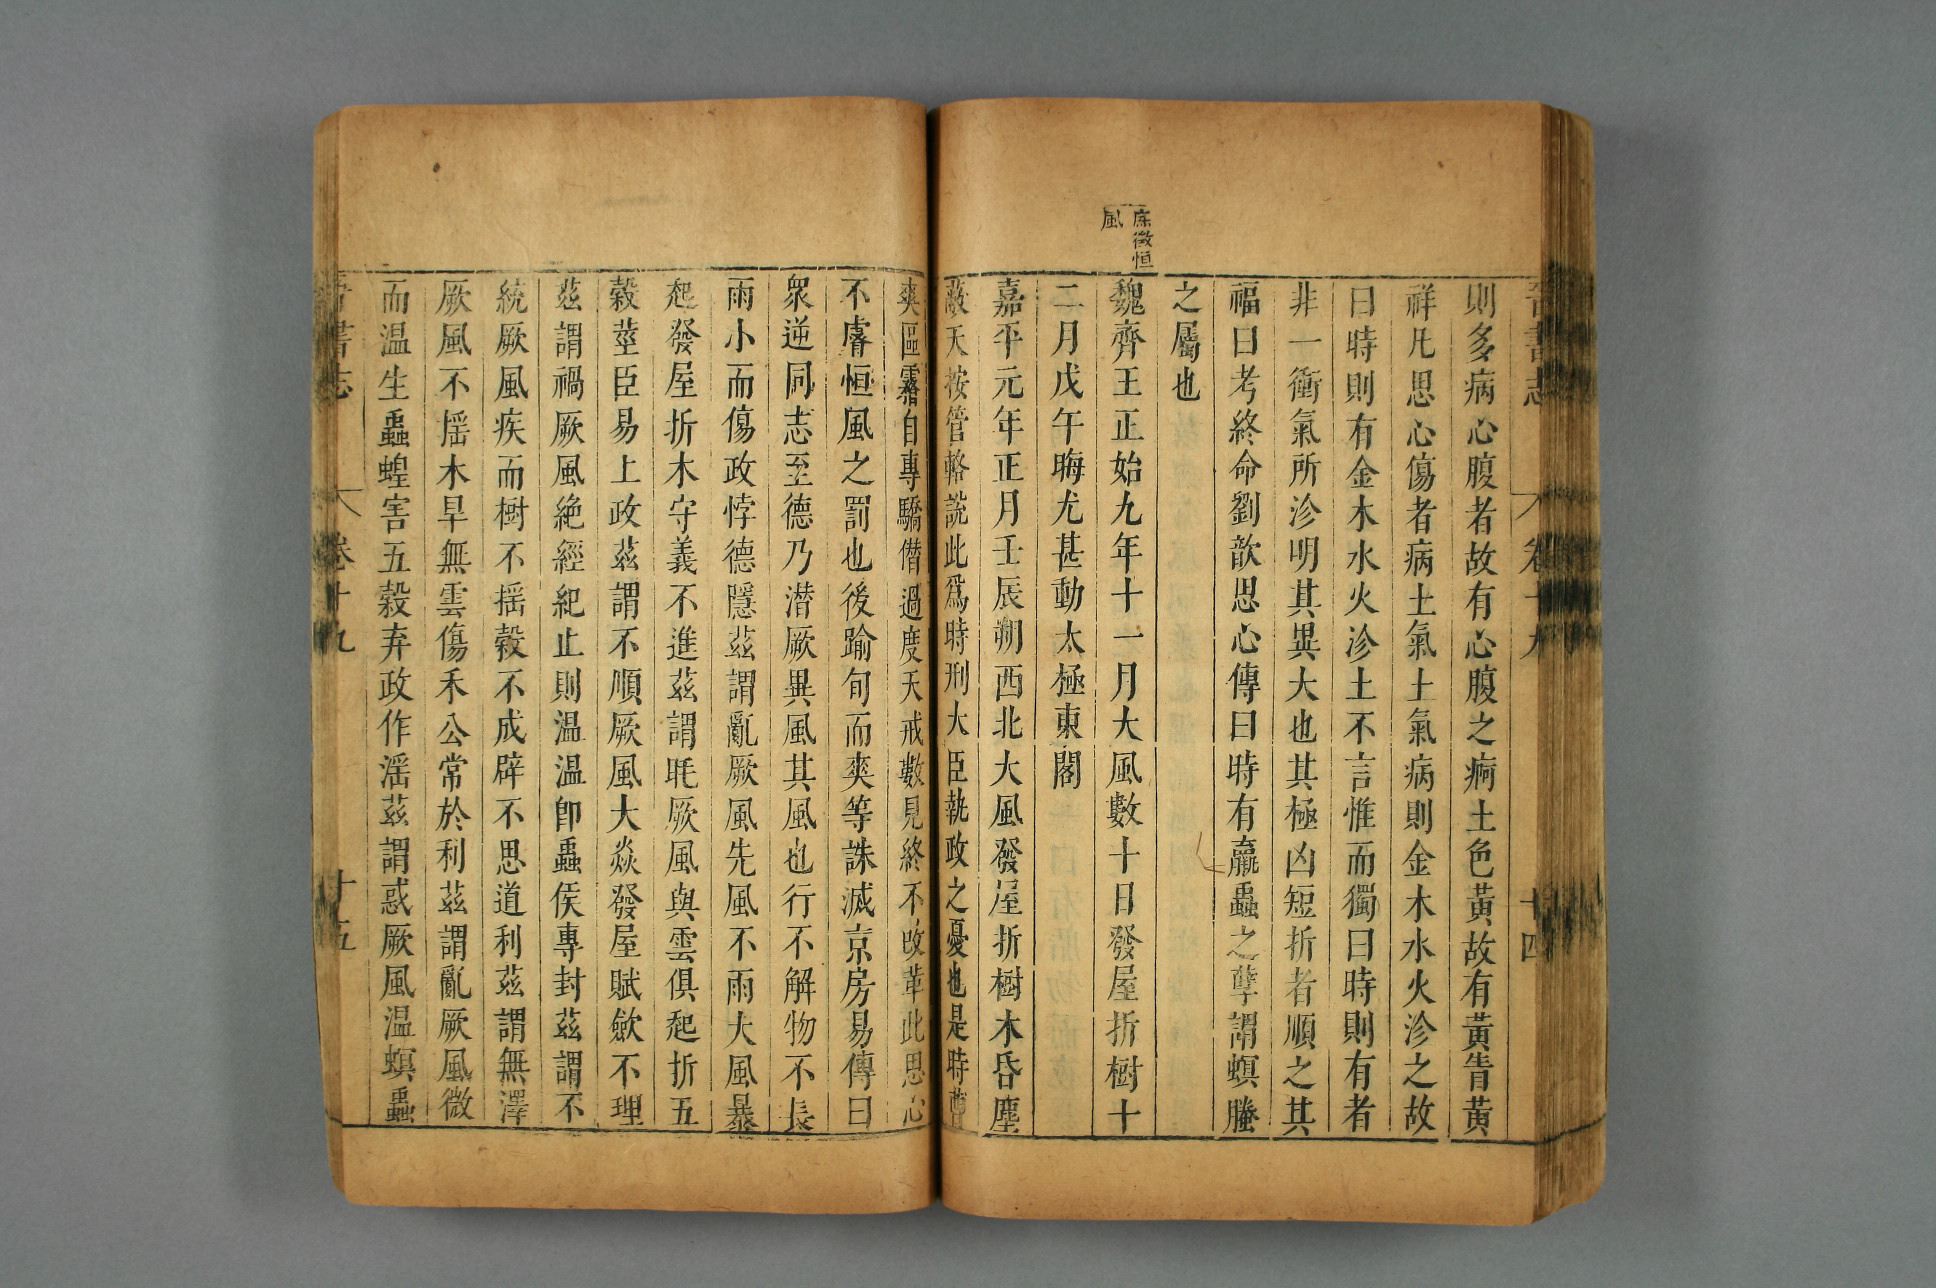 晉書志 卷十九 十四
則多病心腹者故有心腹之痾土色黃故有黃眚黃
祥凡思心傷者病土氣土氣病則金木水火沴之故
曰時則有金木水火沴土不言惟而獨曰時則有者
非一衝氣所沴明其異大也其極凶短折者順之其
福曰考終命劉歆思心傳曰時有蠃蟲之孽謂螟螣
之屬也
庶徵恒
風
魏齊王正始九年十一月大風數十日發屋折樹十
二月戊午晦尤甚動太極東閣
嘉平元年正月壬辰朔西北大風發屋折樹木昏塵
蔽天按管輅說此爲時刑大臣執政之憂也是時曹
爽區霿自專驕僣過度天戒數見終不改革此思心
不睿恒風之罰也後踰旬而爽等誅滅京房易傳曰
衆逆同志至德乃潜厥異風其風也行不解物不長
雨小而傷政悖德隱茲謂亂厥風先風不雨大風暴
起發屋折木守義不進茲謂眊厥風與雲俱起折五
穀莖臣易上政茲謂不順厥風大焱發屋賦斂不理
茲謂禍厥風絶經紀止則温温卽蟲侯專封茲謂不
統厥風疾而樹不摇穀不成辟不思道利茲謂無澤
厥風不摇木旱無雲傷禾公常於利茲謂亂厥風微
而温生蟲蝗害五穀弃政作滛茲謂惑厥風温螟蟲
晉書志 卷十九 十五